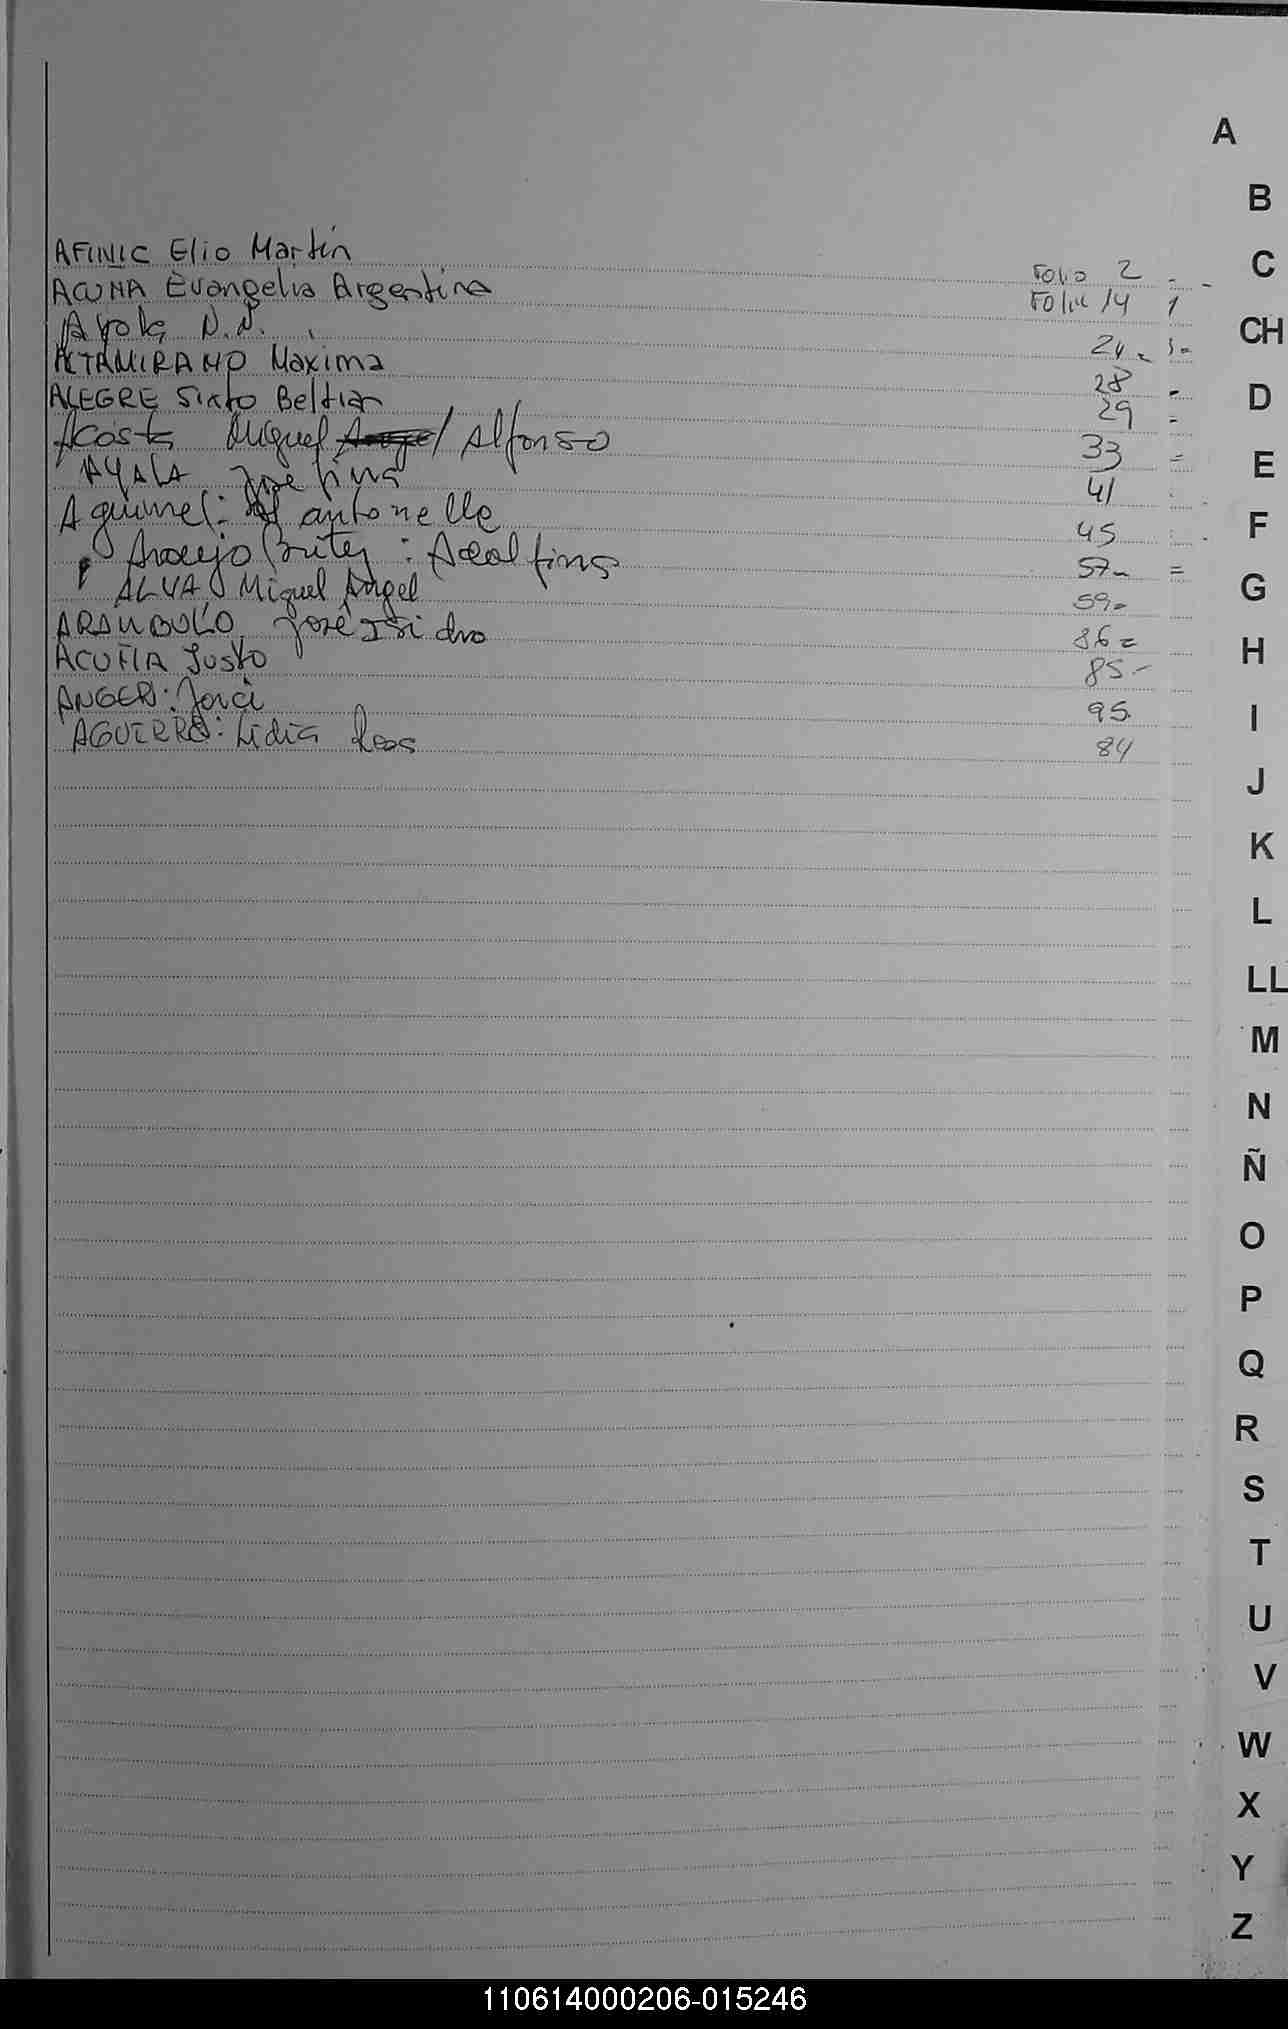 A
B
C
CH
D
E
F
G
H
I
J
K
L
LL
M
N
Ñ
O
P
Q
R
S
T
U
V
W
X
Y
Z
AFINIC Elio Martín Folio 2 -
ACUÑA Evangelia Argentina Folio 14 1
Ayala N.N. 24
ALTAMIRANO Maxima 28 -
ALEGRE Sixto Beltran 29 =
Acosta Miguel Alfonso 33 =
AYALA Josefina 41
antonella 45
Araujo Britez : Adolfina 57 =
ALVA, Miguel Angel 59=
ARAMBULO, José Isidro 86=
ACUÑA Justo 85-
ANGER: Jorge 95.
AGUIRRE: Lidia Rosa 84
110614000206-015246